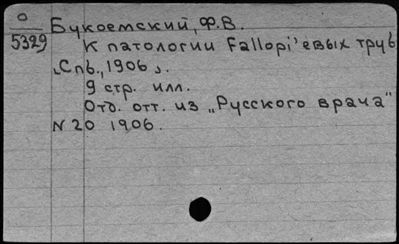 О
5329
Букоемский, Ф.В.
К патологии Fallopi'евых труб
[Спб., 1906].
9 стр. илл.
Отд. отт. из „Русского врача"
N 20 1906.